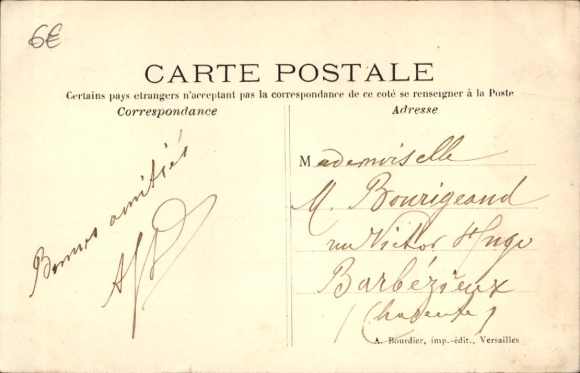 6€
CARTE POSTALE
Certains pays etrangers n'acceptant pas la correspondance de ce coté se renseigner à la Poste
Correspondance
Adresse
Bonnes amitiés
Mademoiselle
M. Bourigeaud
rue Victor Hugo
Barbézieux
(Charente)
A. Bourdier, imp.-édit., Versailles